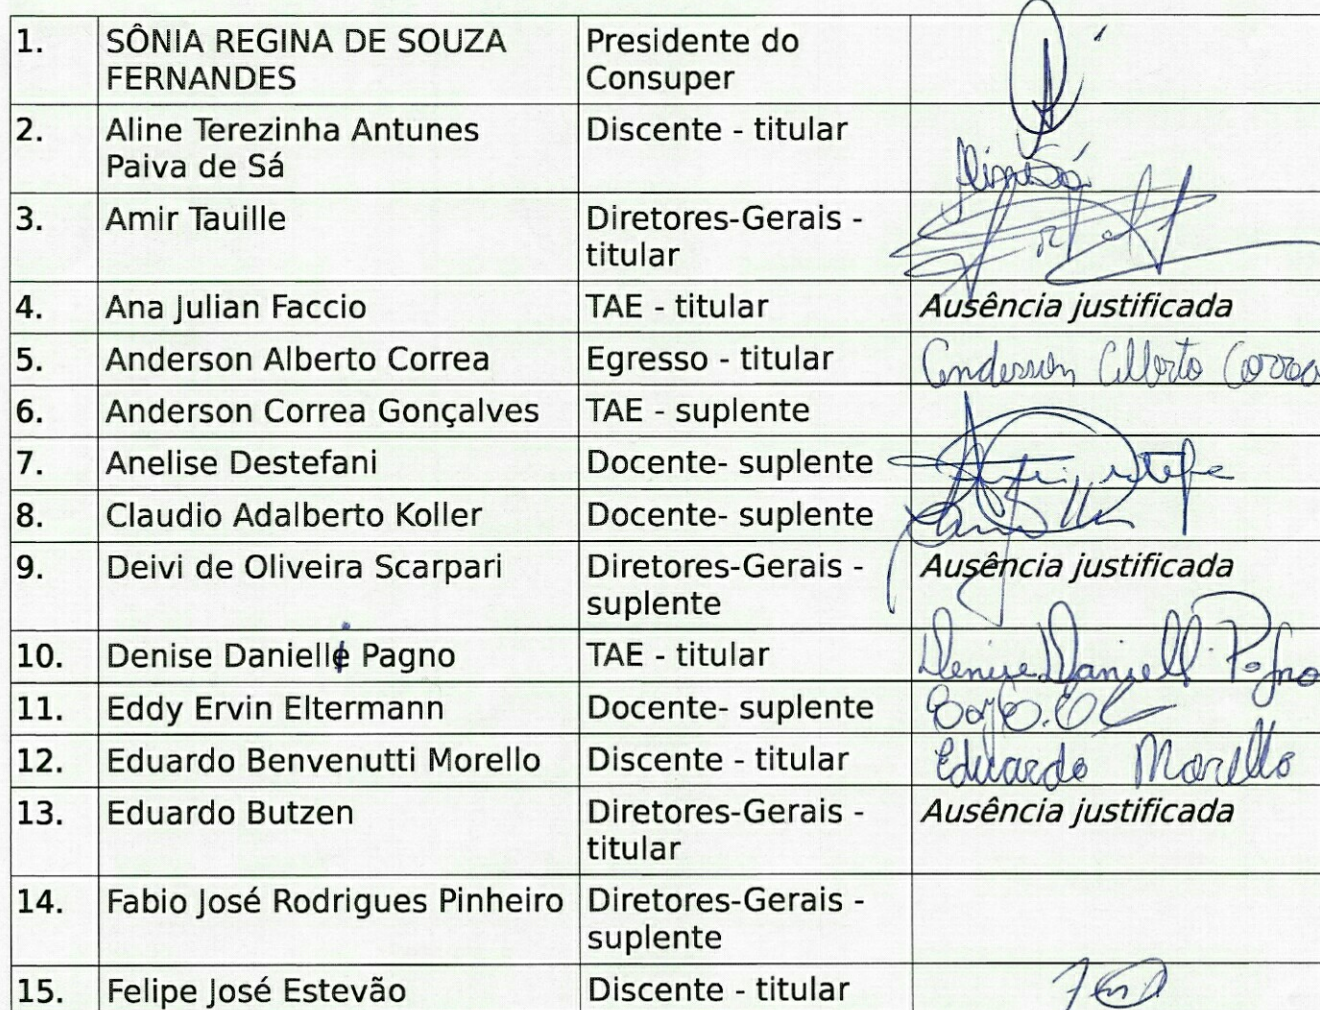 1. SÔNIA REGINA DE SOUZA Presidente do
FERNANDES Consuper
2. Aline Terezinha Antunes Discente - titular
Paiva de Sá
3. Amir Tauille Diretores-Gerais -
titular
4. Ana Julian Faccio TAE - titular Ausência justificada
5. Anderson Alberto Correa Egresso - titular Anderson Alberto Correa
6. Anderson Correa Gonçalves TAE - suplente
7. Anelise Destefani Docente- suplente
8. Claudio Adalberto Koller Docente- suplente
9. Deivi de Oliveira Scarpari Diretores-Gerais - Ausência justificada
suplente
10. Denise Danielle Pagno TAE - titular Denise Danielli Pagno
11. Eddy Ervin Eltermann Docente- suplente
12. Eduardo Benvenutti Morello Discente - titular Eduardo Morello
13. Eduardo Butzen Diretores-Gerais - Ausência justificada
titular
14. Fabio José Rodrigues Pinheiro Diretores-Gerais -
suplente
15. Felipe José Estevão Discente - titular